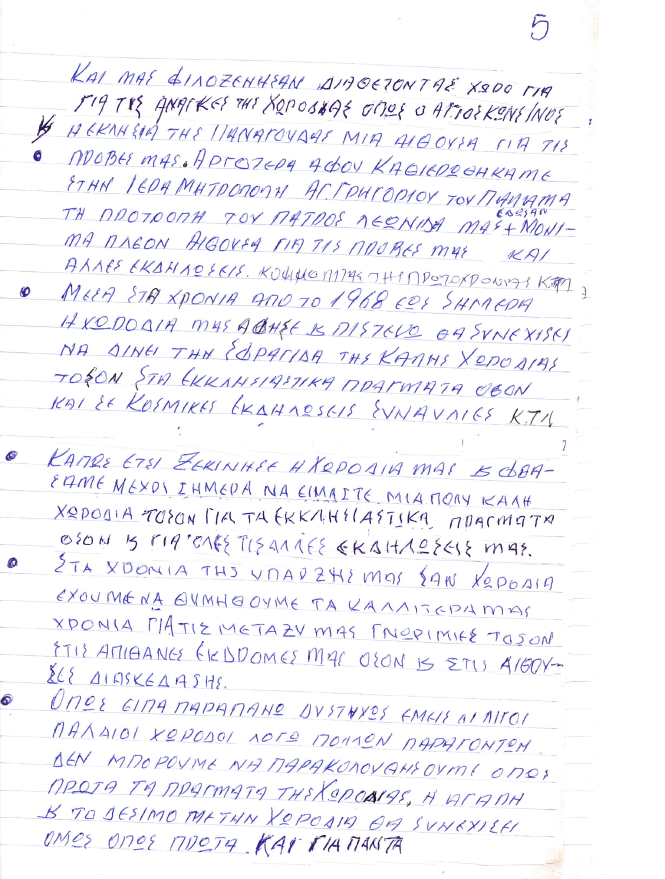 5
ΚΑΙ ΜΑΣ ΦΙΛΟΞΕΝΗΣΑΝ ΔΙΑΘΕΤΟΝΤΑΣ ΧΩΡΟ ΓΙΑ
ΓΙΑ ΤΙΣ ΑΝΑΓΚΕΣ ΤΗΣ ΧΩΡΟΔΙΑΣ ΟΠΩΣ Ο ΑΓΙΟΣ ΚΩΝΣ/ΝΟΣ
Κ Η ΕΚΛΗΣΙΑ ΤΗΣ ΠΑΝΑΓΟΥΔΑΣ ΜΙΑ ΑΙΘΟΥΣΑ ΓΙΑ ΤΙΣ
• ΠΡΟΒΕΣ ΜΑΣ. ΑΡΓΟΤΕΡΑ ΑΦΟΥ ΚΑΘΙΕΡΩΘΗΚΑΜΕ
ΣΤΗΝ ΙΕΡΑ ΜΗΤΡΟΠΟΛΗ ΑΓ. ΓΡΗΓΟΡΙΟΥ ΤΟΥ ΠΑΛΑΜΑ
ΕΔΩΣΑΝ
ΤΗ ΠΡΟΤΡΟΠΗ ΤΟΥ ΠΑΤΡΟΣ ΛΕΩΝΙΔΑ ΜΑΣ + ΜΟΝΙ-
ΜΑ ΠΛΕΟΝ ΑΙΘΟΥΣΑ ΓΙΑ ΤΙΣ ΠΡΟΒΕΣ ΜΑΣ ΚΑΙ
ΑΛΛΕΣ ΕΚΔΗΛΩΣΕΙΣ. ΚΟΨΙΜΟ ΠΙΤΑΣ ΤΗΣ ΠΡΩΤΟΧΡΟΝΙΑΣ ΚΤΛ
• ΜΕΣΑ ΣΤΑ ΧΡΟΝΙΑ ΑΠΟ ΤΟ 1968 ΕΩΣ ΣΗΜΕΡΑ
Η ΧΩΡΟΔΙΑ ΜΑΣ ΑΦΗΣΕ Κ ΠΙΣΤΕΥΩ ΘΑ ΣΥΝΕΧΙΣΕΙ
ΝΑ ΔΙΝΕΙ ΤΗΝ ΣΦΡΑΓΙΔΑ ΤΗΣ ΚΑΛΗΣ ΧΩΡΟΔΙΑΣ
ΤΟΣΟΝ ΣΤΑ ΕΚΚΛΗΣΙΑΣΤΙΚΑ ΠΡΑΓΜΑΤΑ ΟΣΟΝ
ΚΑΙ ΣΕ ΚΟΣΜΙΚΕΣ ΕΚΔΗΛΩΣΕΙΣ ΣΥΝΑΥΛΙΕΣ Κ.ΤΛ
• ΚΑΠΩΣ ΕΤΣΙ ΞΕΚΙΝΗΣΕ Η ΧΩΡΟΔΙΑ ΜΑΣ Κ ΦΘΑ-
ΣΑΜΕ ΜΕΧΡΙ ΣΗΜΕΡΑ ΝΑ ΕΙΜΑΣΤΕ ΜΙΑ ΠΟΛΥ ΚΑΛΗ
ΧΩΡΟΔΙΑ ΤΟΣΟΝ ΓΙΑ ΤΑ ΕΚΚΛΗΣΙΑΣΤΙΚΑ ΠΡΑΓΜΑΤΑ
ΟΣΟΝ Κ ΓΙΑ ΟΛΕΣ ΤΙΣ ΑΛΛΕΣ ΕΚΔΗΛΩΣΕΙΣ ΜΑΣ.
• ΣΤΑ ΧΡΟΝΙΑ ΤΗΣ ΥΠΑΡΞΗΣ ΜΑΣ ΣΑΝ ΧΩΡΟΔΙΑ
ΕΧΟΥΜΕ ΝΑ ΘΥΜΗΘΟΥΜΕ ΤΑ ΚΑΛΛΙΤΕΡΑ ΜΑΣ
ΧΡΟΝΙΑ ΓΙΑ ΤΙΣ ΜΕΤΑΞΥ ΜΑΣ ΓΝΩΡΙΜΙΕΣ ΤΟΣΟΝ
ΣΤΙΣ ΑΠΙΘΑΝΕΣ ΕΚΔΡΟΜΕΣ ΜΑΣ ΟΣΟΝ Κ ΣΤΙΣ ΑΙΘΟΥ-
ΣΕΣ ΔΙΑΣΚΕΔΑΣΗΣ.
• ΟΠΩΣ ΕΙΠΑ ΠΑΡΑΠΑΝΩ ΔΥΣΤΗΧΩΣ ΕΜΕΙΣ ΛΙ ΛΙΓΟΙ
ΠΑΛΑΙΟΙ ΧΩΡΟΔΟΙ ΛΟΓΩ ΠΟΛΛΩΝ ΠΑΡΑΓΟΝΤΩΝ
ΔΕΝ ΜΠΟΡΟΥΜΕ ΝΑ ΠΑΡΑΚΟΛΟΥΘΗΣΟΥΜΕ ΟΠΩΣ
ΠΡΩΤΑ ΤΑ ΠΡΑΓΜΑΤΑ ΤΗΣ ΧΩΡΟΔΙΑΣ, Η ΑΓΑΠΗ
Κ ΤΟ ΔΕΣΙΜΟ ΜΕ ΤΗΝ ΧΩΡΟΔΙΑ ΘΑ ΣΥΝΕΧΙΣΕΙ
ΟΜΩΣ ΟΠΩΣ ΠΡΩΤΑ ΚΑΙ ΓΙΑ ΠΑΝΤΑ